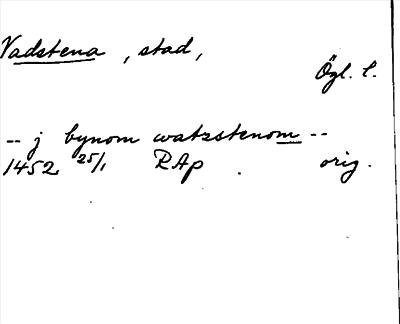 Vadstena, stad,
Ögl. l.
-- j bynom watzstenom --
1452 25/1 RAp. orig.